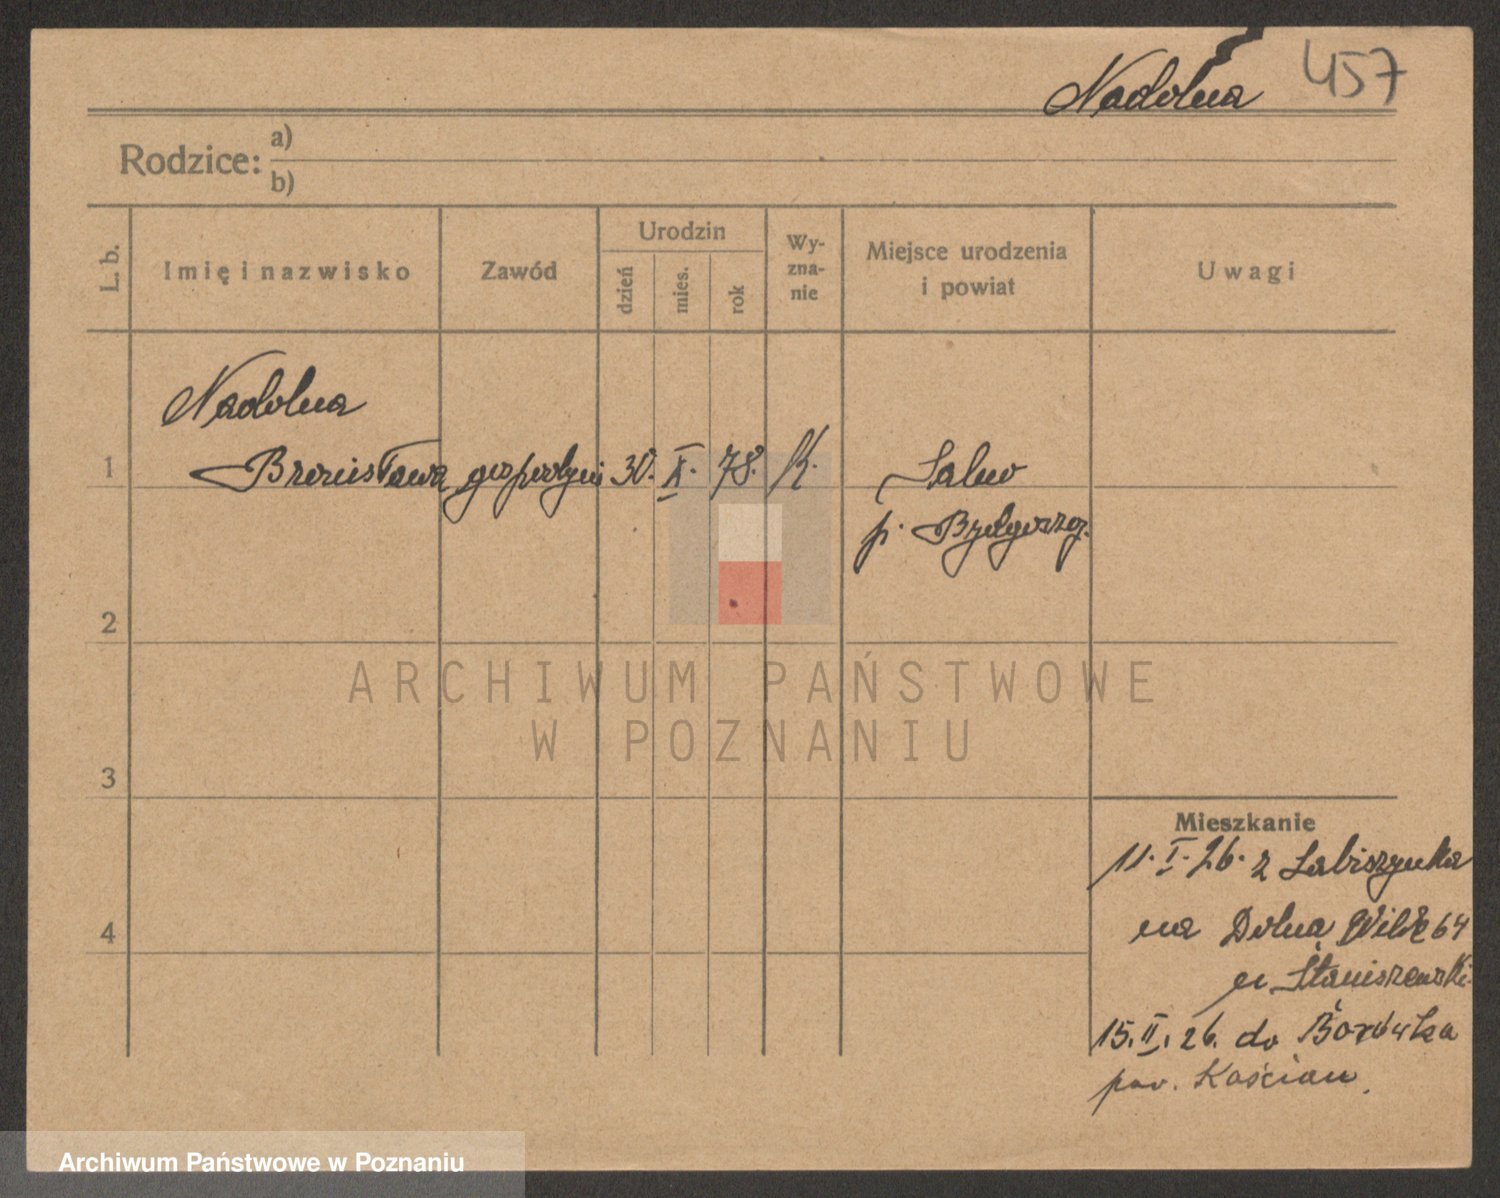 Nadolna 457
Rodzice: a)
b)
L. b. Imię i nazwisko Zawód Urodzin dzień mies. rok Wy-zna-nie Miejsce urodzenia i powiat Uwagi
Nadolna
1 Bronisława gospodyni 30. X. 78. k.
p. Bydgoszcz.
2
ARCHIWUM PAŃSTWOWE
W POZNANIU
3
Mieszkanie
11. I. 26. z Łabiszynka
4 na Dolna Wilda 64
u Staniszewski
15. II. 26. do Borówka
pow. Kościan.
Archiwum Państwowe w Poznaniu